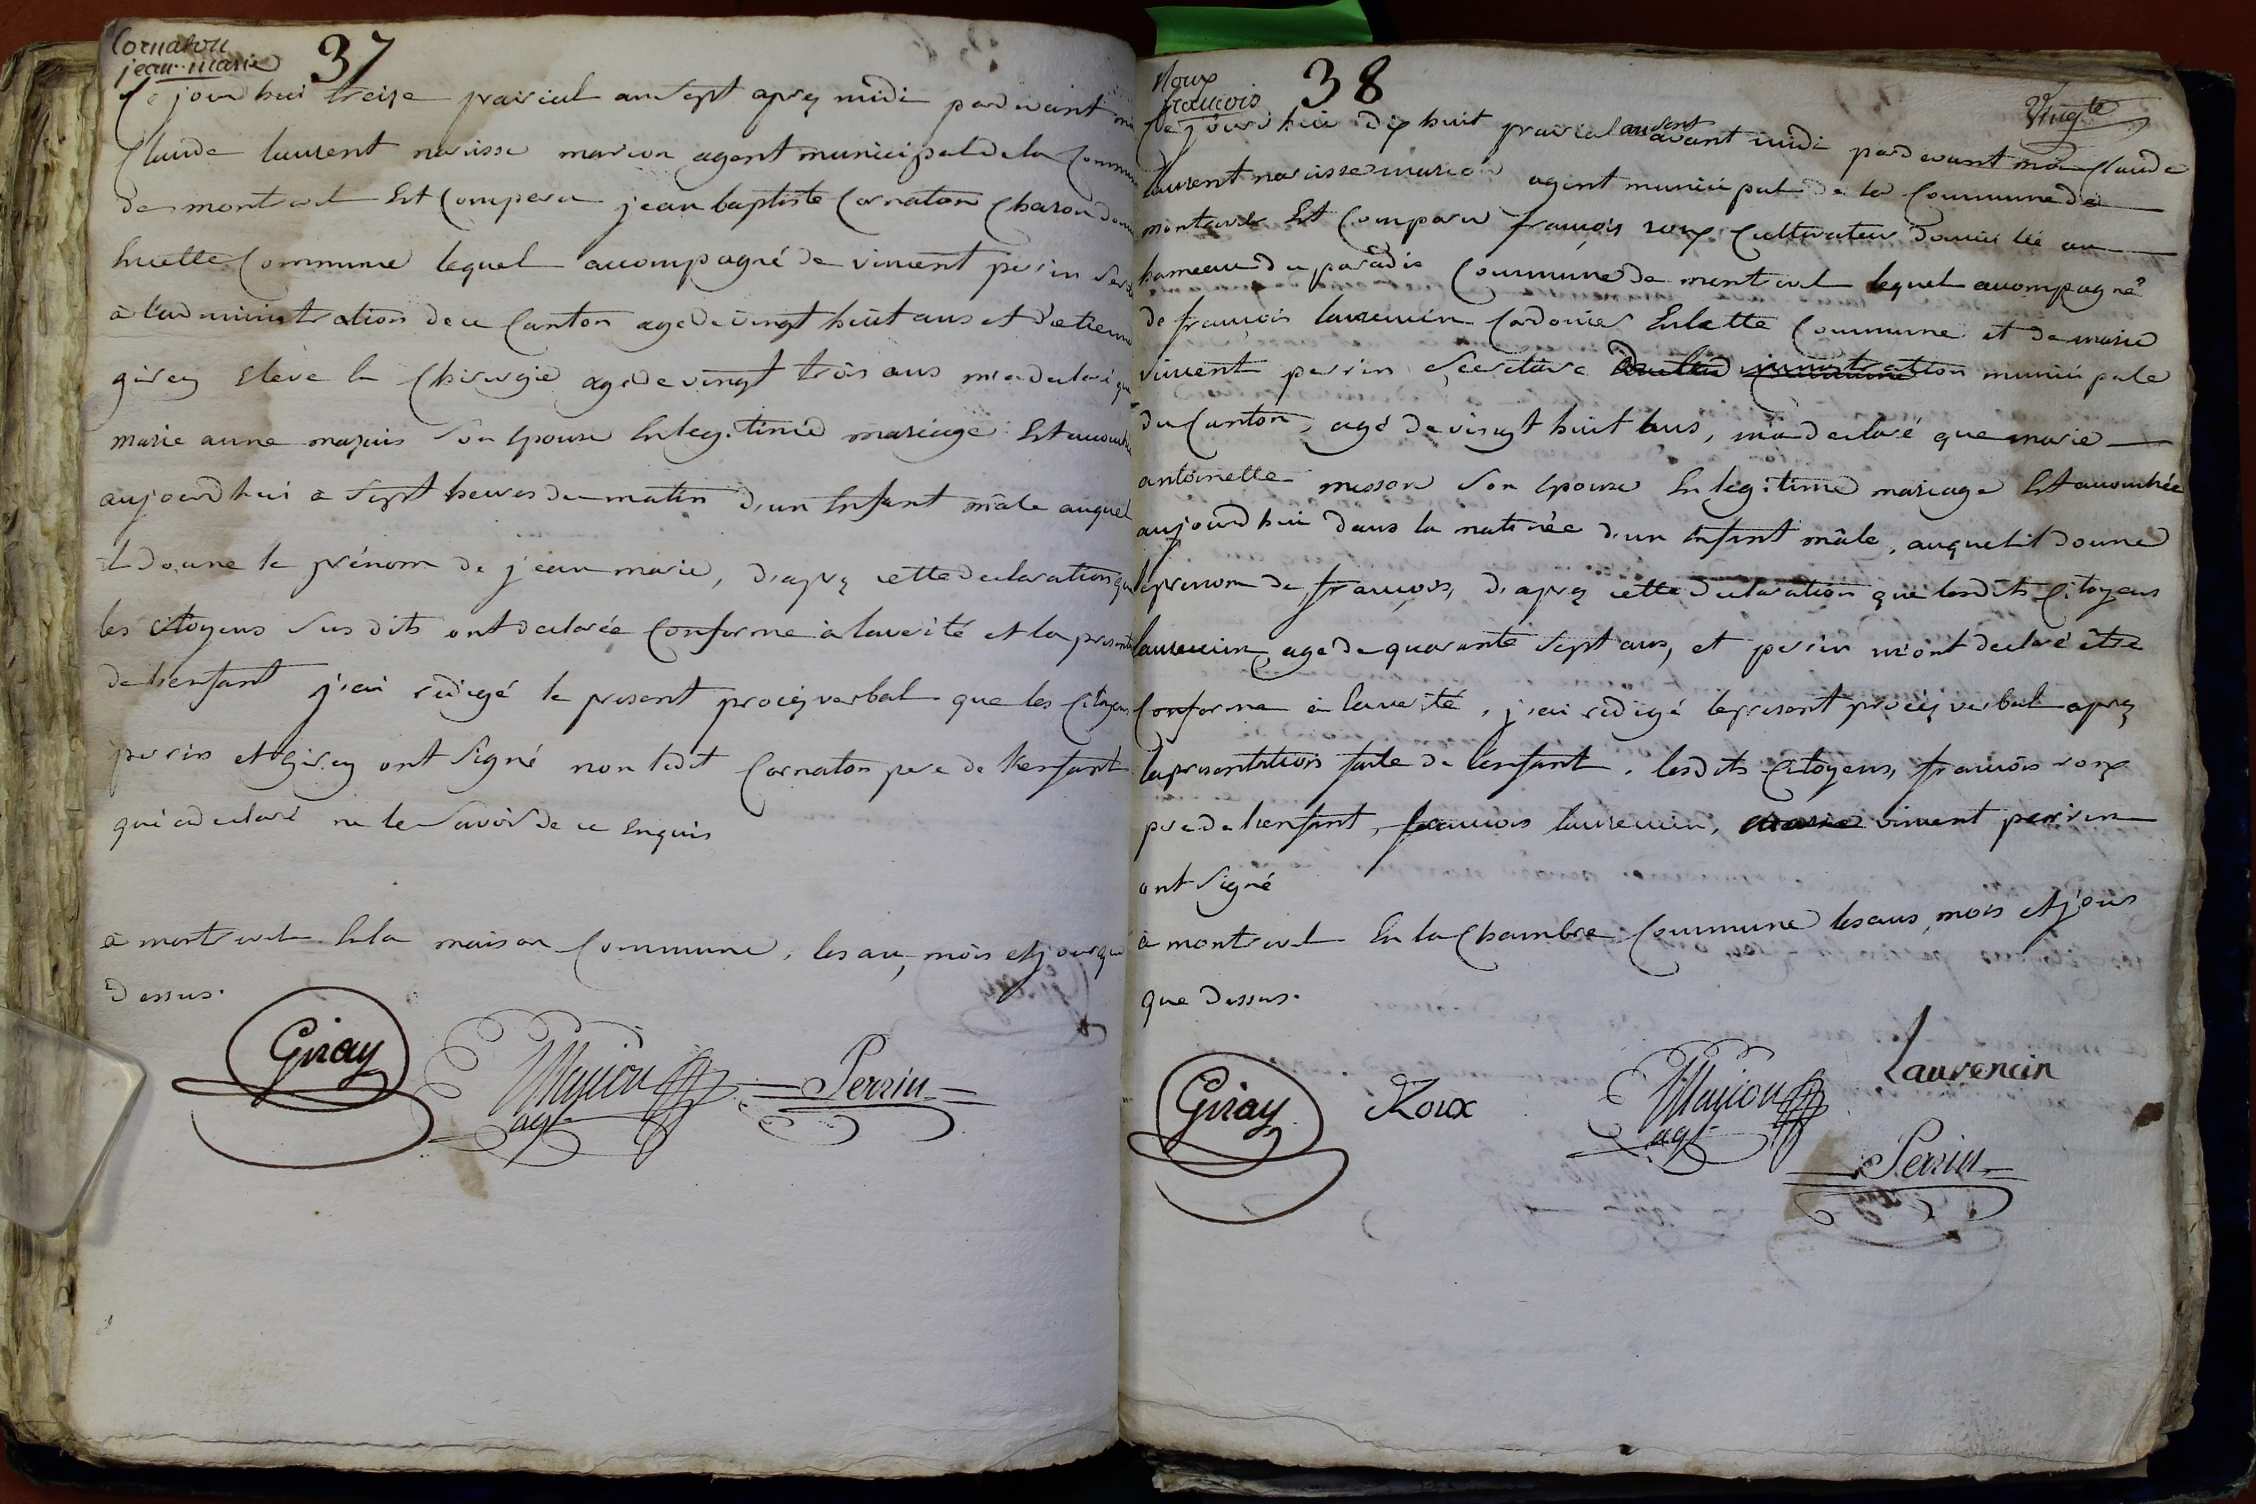 Cornaton
jean marie
37
Ce jourd hui treize prairial an sept apres midi par devant moi
Claude laurent narcisse marion agent municipal de la Commune
de montrevel Est Comparu jean baptiste Cornaton Charon
huette Commune lequel accompagné de vincent perrin
à l'administration de ce Canton agé de vingt huit ans et d'etienne
girey Elève en Chirurgie agé de vingt trois ans m'a declaré que
marie anne mazuis son Epouse En legitime mariage Est accouchée
aujourd hui a Sept heures du matin d'un Enfant mâle auquel
il donne le prénom de jean marie, d'apres cette declaration que
les citoyens Sus dits ont declarée Conforme à la verité et la presentation
de l'enfant j'ai redigé le present procez verbal que les Citoyens
perrin et Girey ont Signé non ledit Cornaton pere de l'enfant
qui a declaré ne le Savoir de ce Enquis
à montrevel En la maison Commune, les an, mois et jour que
Dessus.
Giray Marion agt Perrin
Roux
françois
38
Vingte
Ce jourd hui dix huit prairial an sept avant midi par devant moi Claude
laurent narcisse marion agent municipal de la Commune de
montrevel Est Comparu françois roux Cultivateur domicilié au
hameau du paradis Commune de montrevel lequel accompagné
de françois laurencin Cordonier En cette Commune et de marie
vincent perrin Secretaire municipale
du Canton, agé de vingt huit ans, m'a declaré que marie
antoinette messon Son Epouse En legitime mariage Est accouchée
aujourd hui dans la matinée d'un Enfant mâle, auquel il donne
le prenom de françois, d'apres cette declaration que les dits Citoyens
laurencin, agé de quarante Sept ans, et perrin m'ont declaré être
Conforme à la verité, j'ai redigé le present procez verbal apres
la presentation faite de l'enfant. les dits Citoyens, françois roux
pere de l'enfant, francois laurencin, marie vincent perrin
ont Signé
à montrevel En la Chambre Commune les ans, mois et jour
que Dessus.
Giray Roux Marion agt Laurencin
Perrin